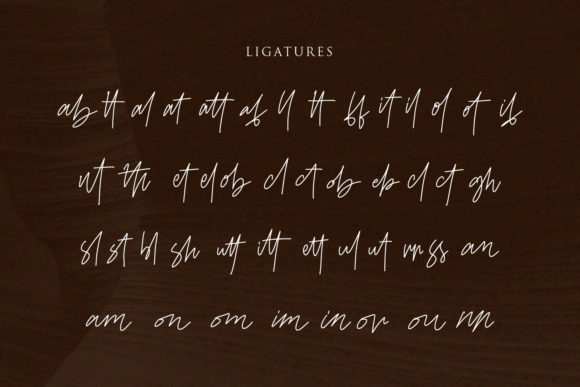 LIGATURES
ab tt al at att af ll tt ff it il ol ot if
ut th et el ob cl ct ob eb cl ct gh
sl st bl sh utt itt ett ul ut rr gs an
am on om im in or ou nn